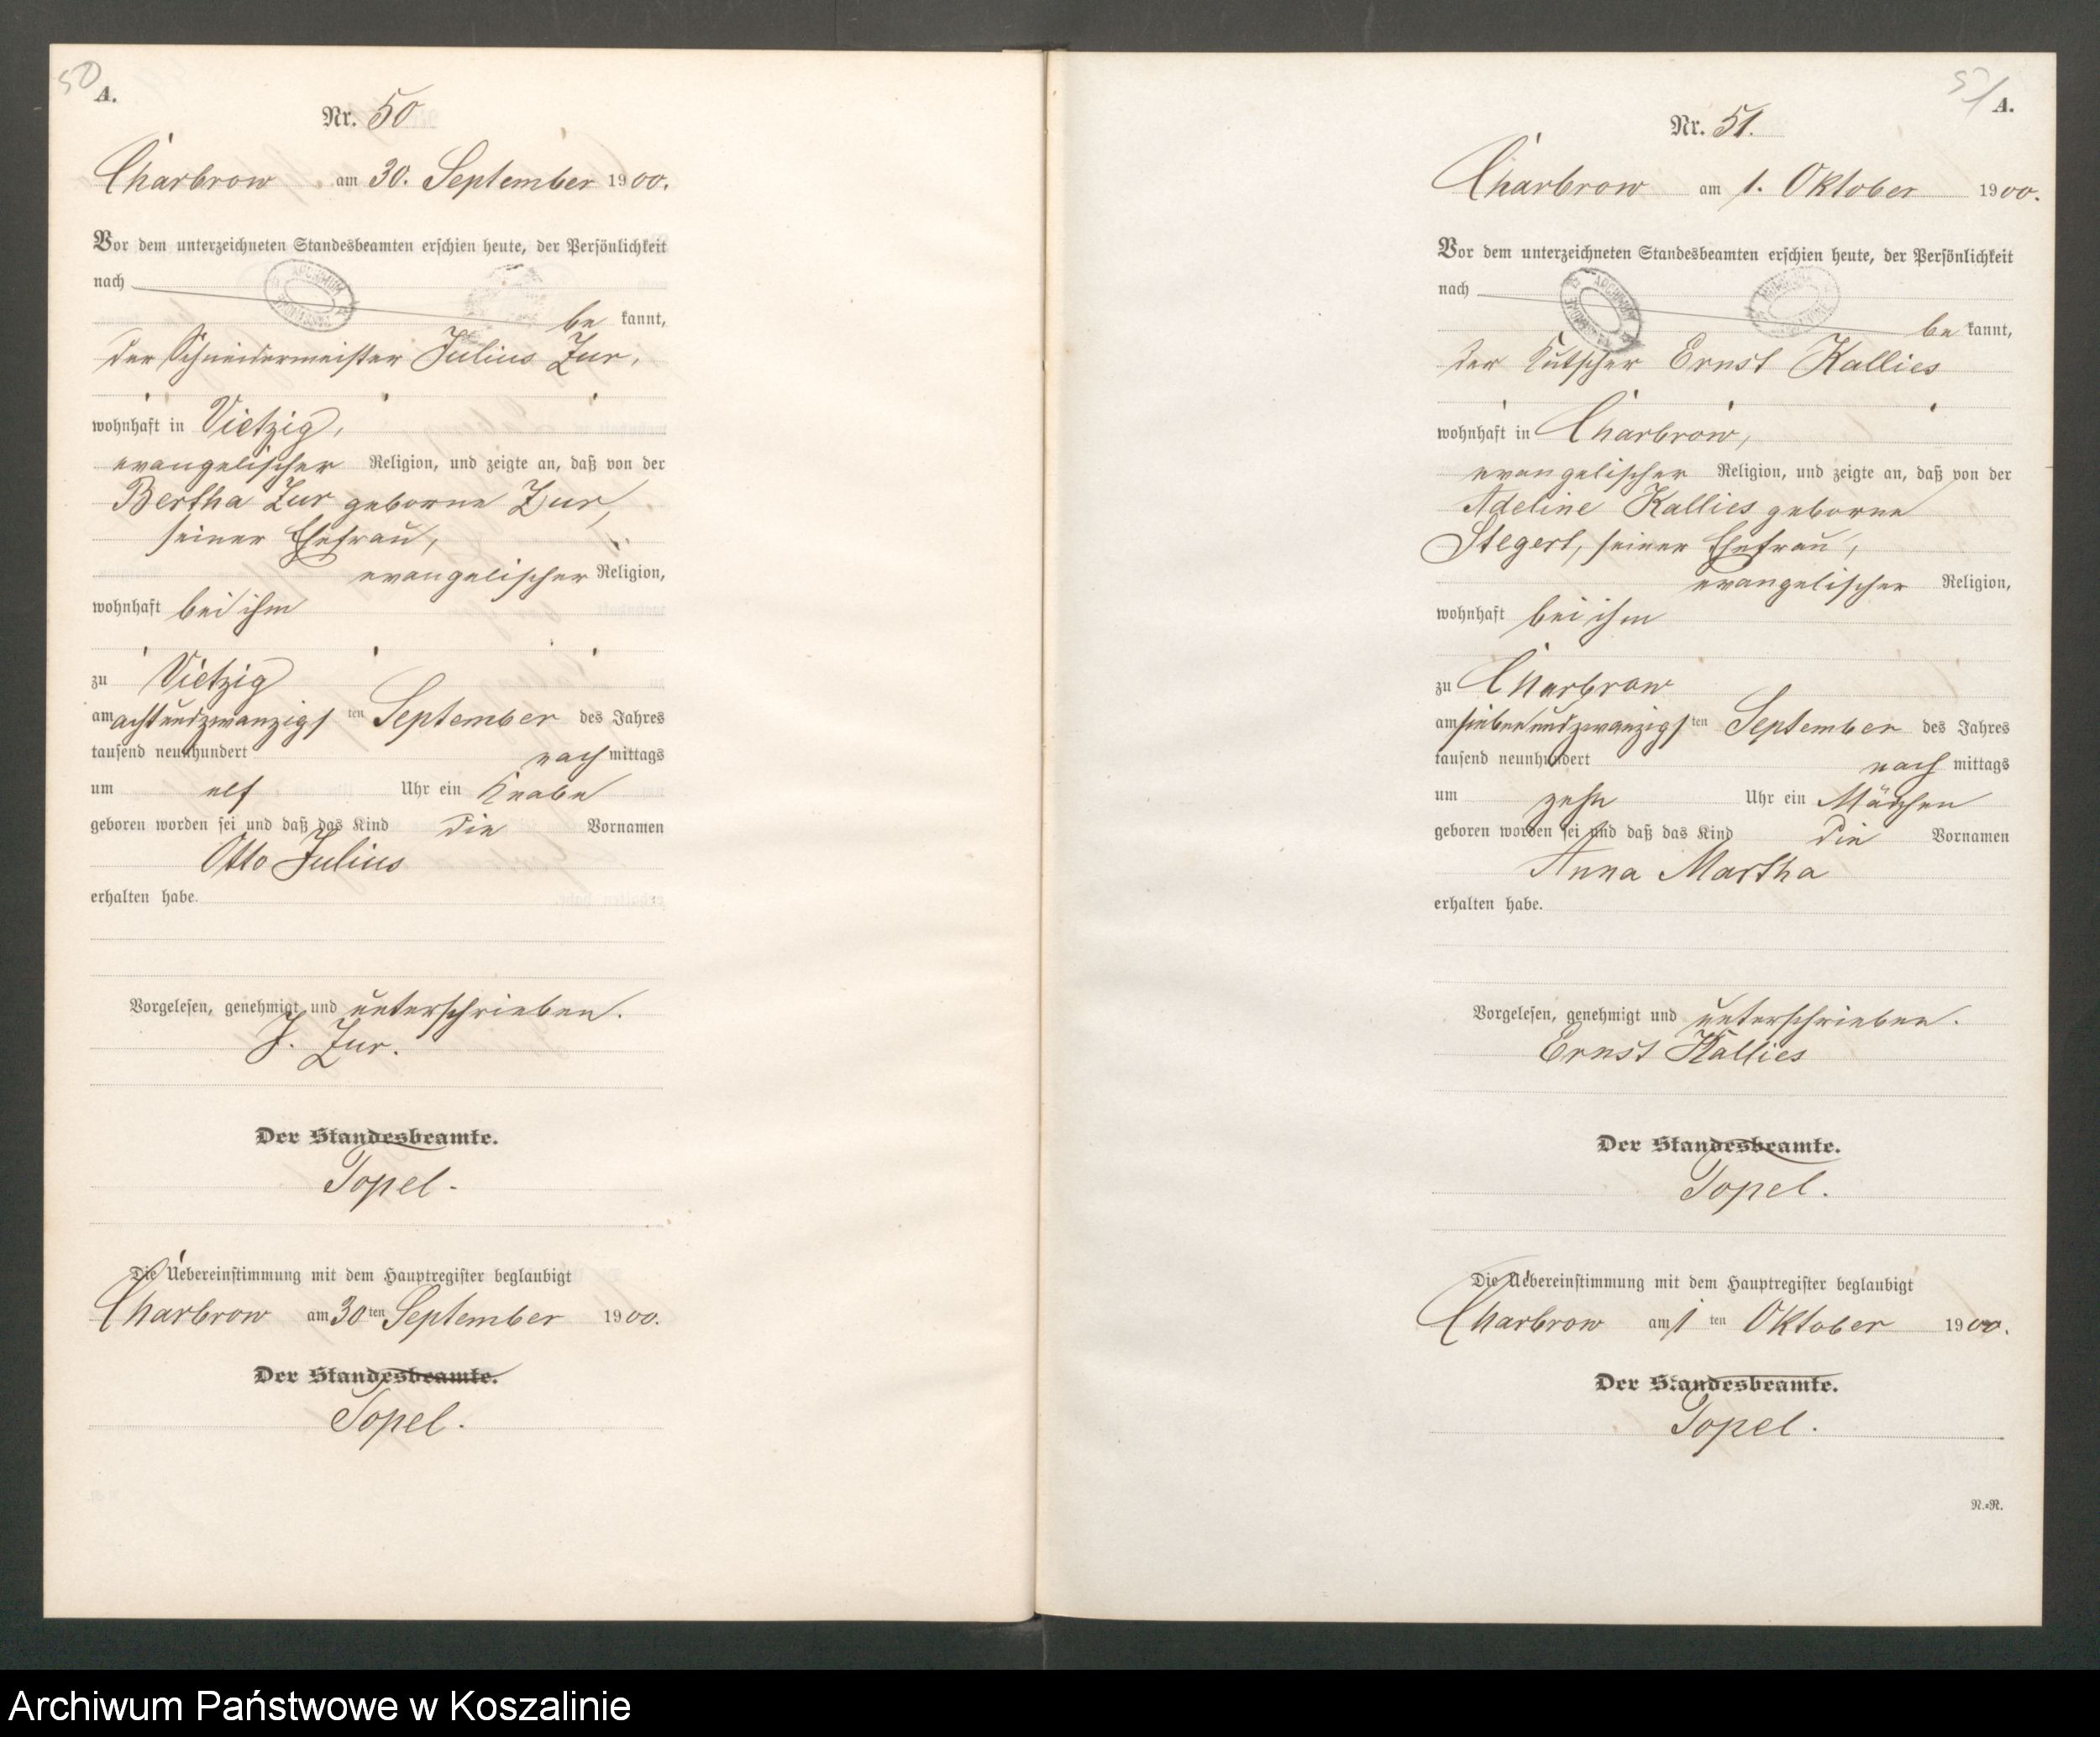 50
A.
Nr. 50
Charbrow am 30. September 1900.
Vor dem unterzeichneten Standesbeamten erschien heute, der Persönlichkeit
nach
be kannt,
der Schneidermeister Julius Zur,
wohnhaft in Vietzig,
evangelischer Religion, und zeigte an, daß von der
Bertha Zur geborne Zur,
seiner Ehefrau,
evangelischer Religion,
wohnhaft bei ihm
zu Vietzig
am achtundzwanzigsten September des Jahres
tausend neunhundert nach mittags
um elf Uhr ein Knabe
geboren worden sei und daß das Kind die Vornamen
Otto Julius
erhalten habe.
Vorgelesen, genehmigt und unterschrieben.
J. Zur.
Der Standesbeamte.
Topel.
Die Uebereinstimmung mit dem Hauptregister beglaubigt
Charbrow am 30ten September 1900.
Der Standesbeamte.
Topel.
51
A.
Nr. 51.
Charbrow am 1. Oktober 1900.
Vor dem unterzeichneten Standesbeamten erschien heute, der Persönlichkeit
nach
be kannt,
der Kutscher Ernst Kallies
wohnhaft in Charbrow,
evangelischer Religion, und zeigte an, daß von der
Adeline Kallies geborne
Stegert, seiner Ehefrau,
evangelischer Religion,
wohnhaft bei ihm
zu Charbrow
am siebenundzwanzigsten September des Jahres
tausend neunhundert nach mittags
um zehn Uhr ein Mädchen
geboren worden sei und daß das Kind die Vornamen
Anna Martha
erhalten habe.
Vorgelesen, genehmigt und unterschrieben.
Ernst Kallies
Der Standesbeamte.
Topel.
Die Uebereinstimmung mit dem Hauptregister beglaubigt
Charbrow am 1ten Oktober 1900.
Der Standesbeamte.
Topel.
N.=R.
Archiwum Państwowe w Koszalinie